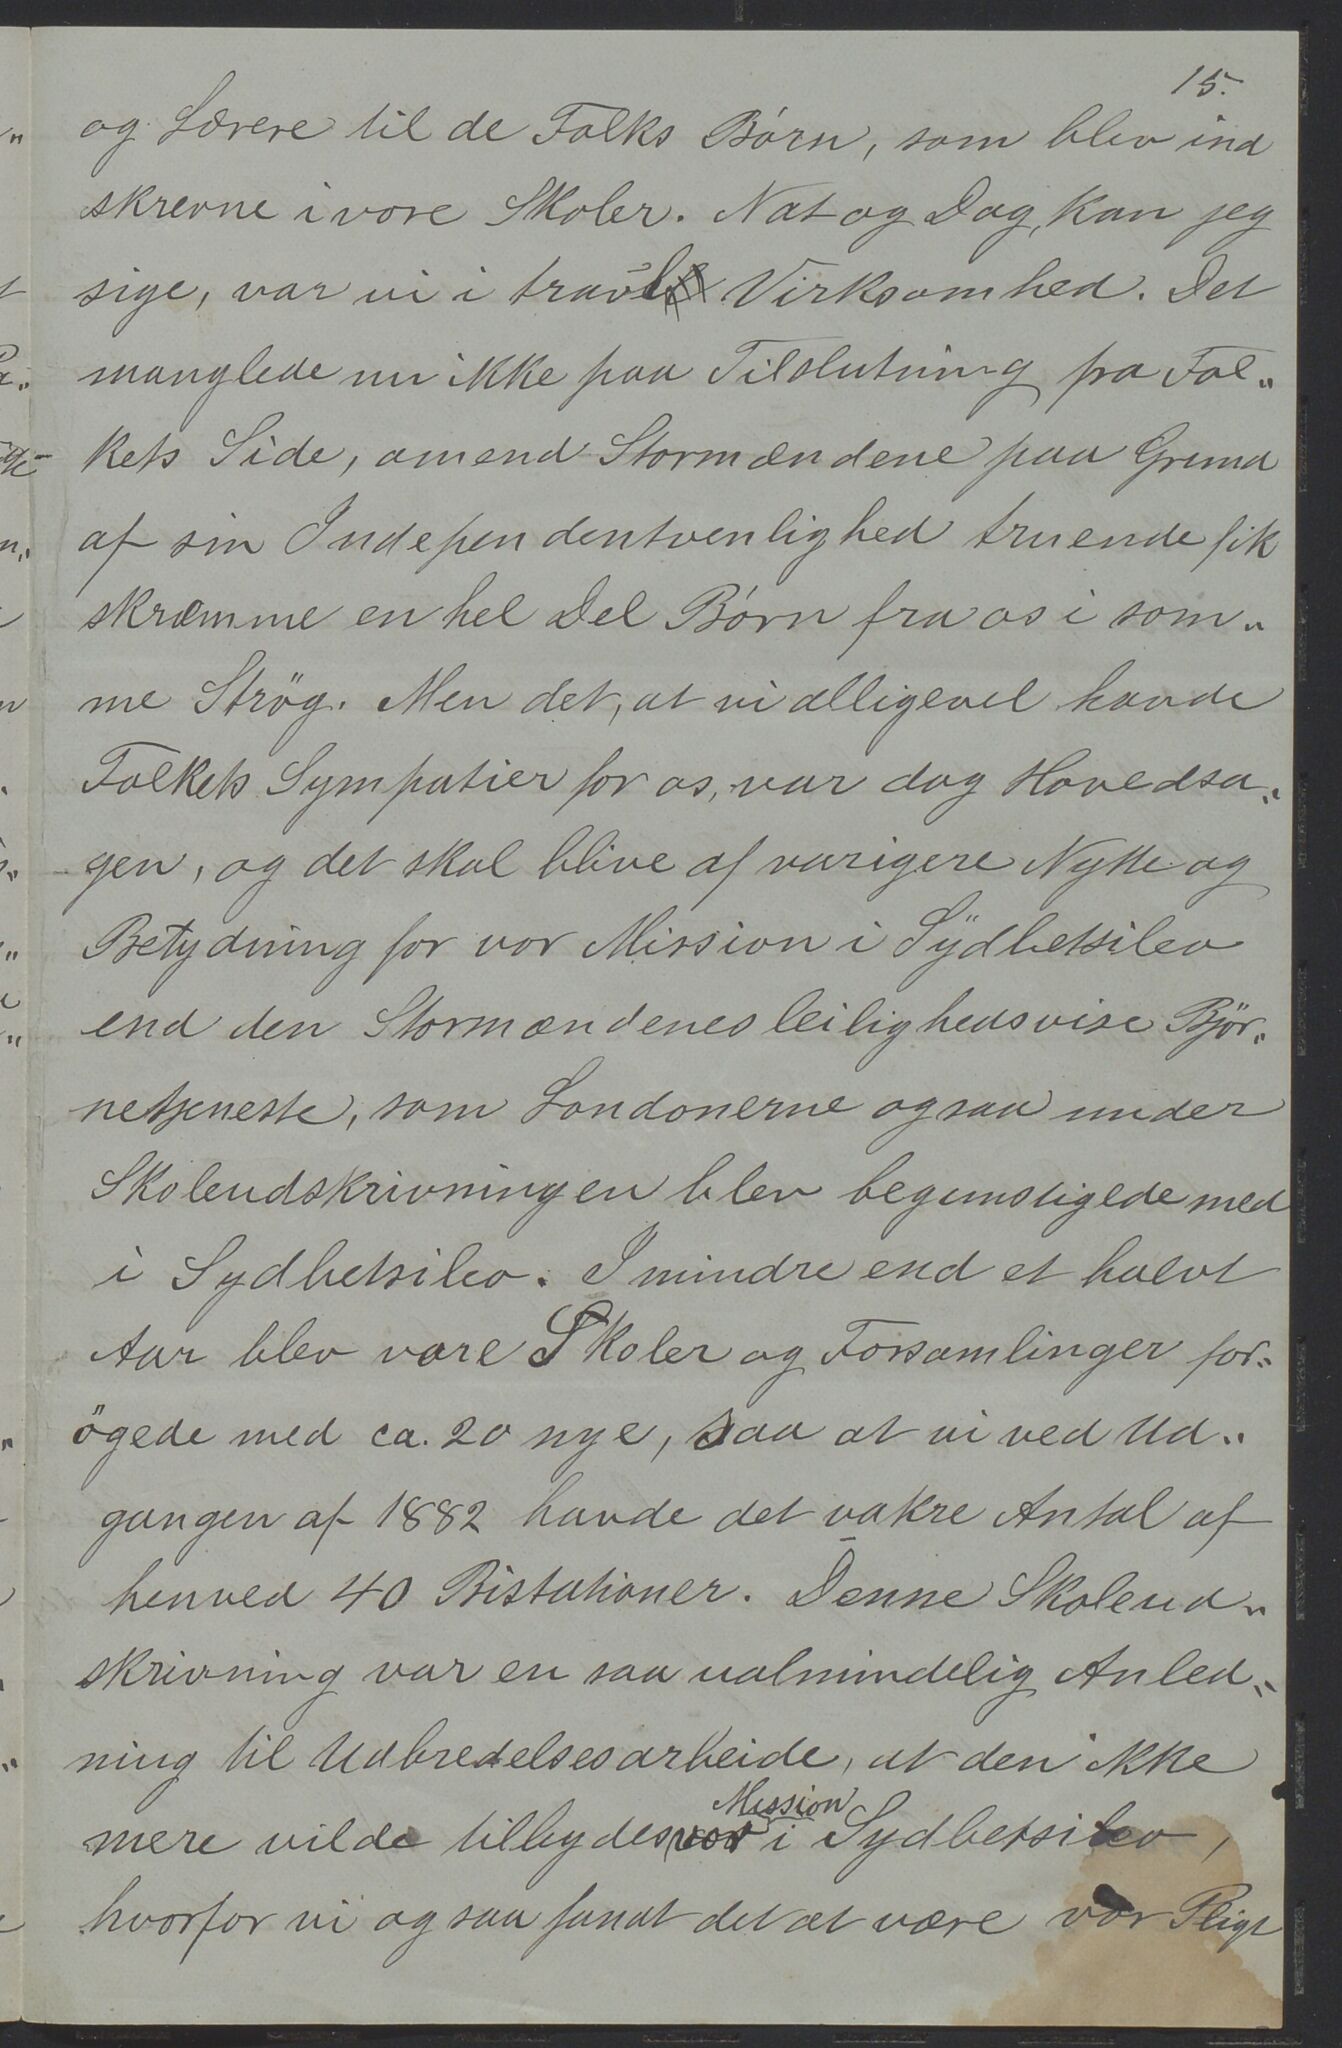 15.
og Lærere til de Folks Børn, som blev ind
skrevne i vore Skoler. Nat og Dag, kan jeg
sige, var vi i travl Virksomhed. Det
manglede nu ikke paa Tilslutning fra Fol„
kets Side, omend Stormændene paa Grund
af sin Independentvenlighed truende fik
skræmme en hel Del Børn fra os i som„
me Strög. Men det, at vi alligevel havde
Folkets Sympatier for os, var dog Hovedsa„
gen, og det skal blive af varigere Nytte og
Betydning for vor Mission i Sydbetsileo
end den Stormændenes leilighedsvise Björ„
netjeneste, som Londonerne ogsaa under
Skoleudskrivningen blev begunstigede med
i Sydbetsileo. I mindre end et halvt
Aar blev vore Skoler og Forsamlinger for„
ögede med ca. 20 nye, saa at vi ved Ud„
gangen af 1882 havde det vakre Antal af
henved 40 Bistationer. Denne Skoleud„
skrivning var en saa ualmindelig Anled„
ning til Udbredelsesarbeide, at den ikke
mere vilde tilbydes vor Mission i Sydbetsileo,
hvorfor vi ogsaa fandt det at være vor Pligt